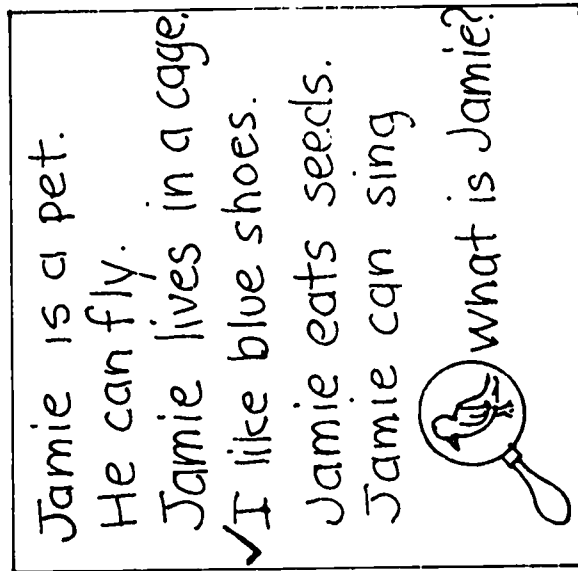 Jamie is a pet.
He can fly.
Jamie lives in a cage.
✓I like blue shoes.
Jamie eats seeds.
Jamie can sing
What is Jamie?